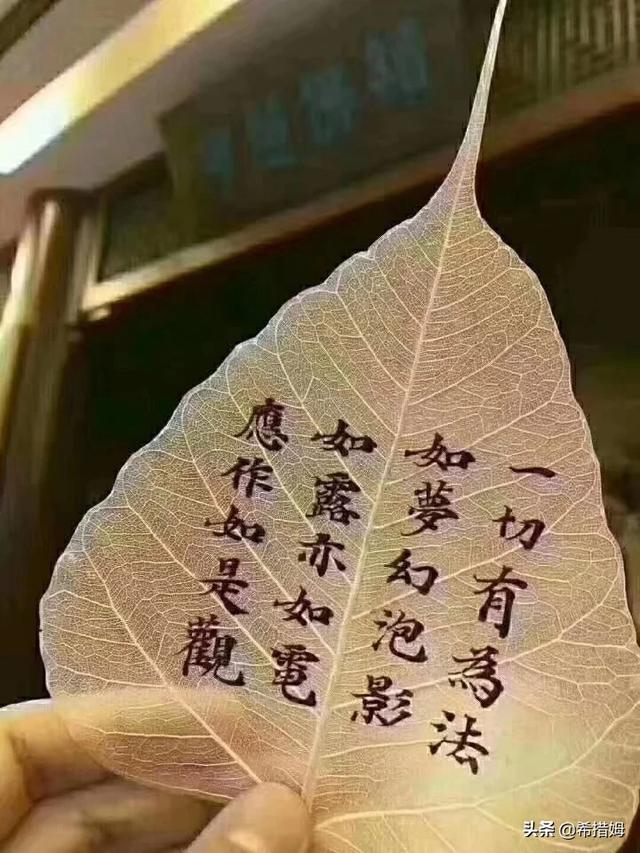 一切有為法
如夢幻泡影
如露亦如電
應作如是觀
头条 @希措姆